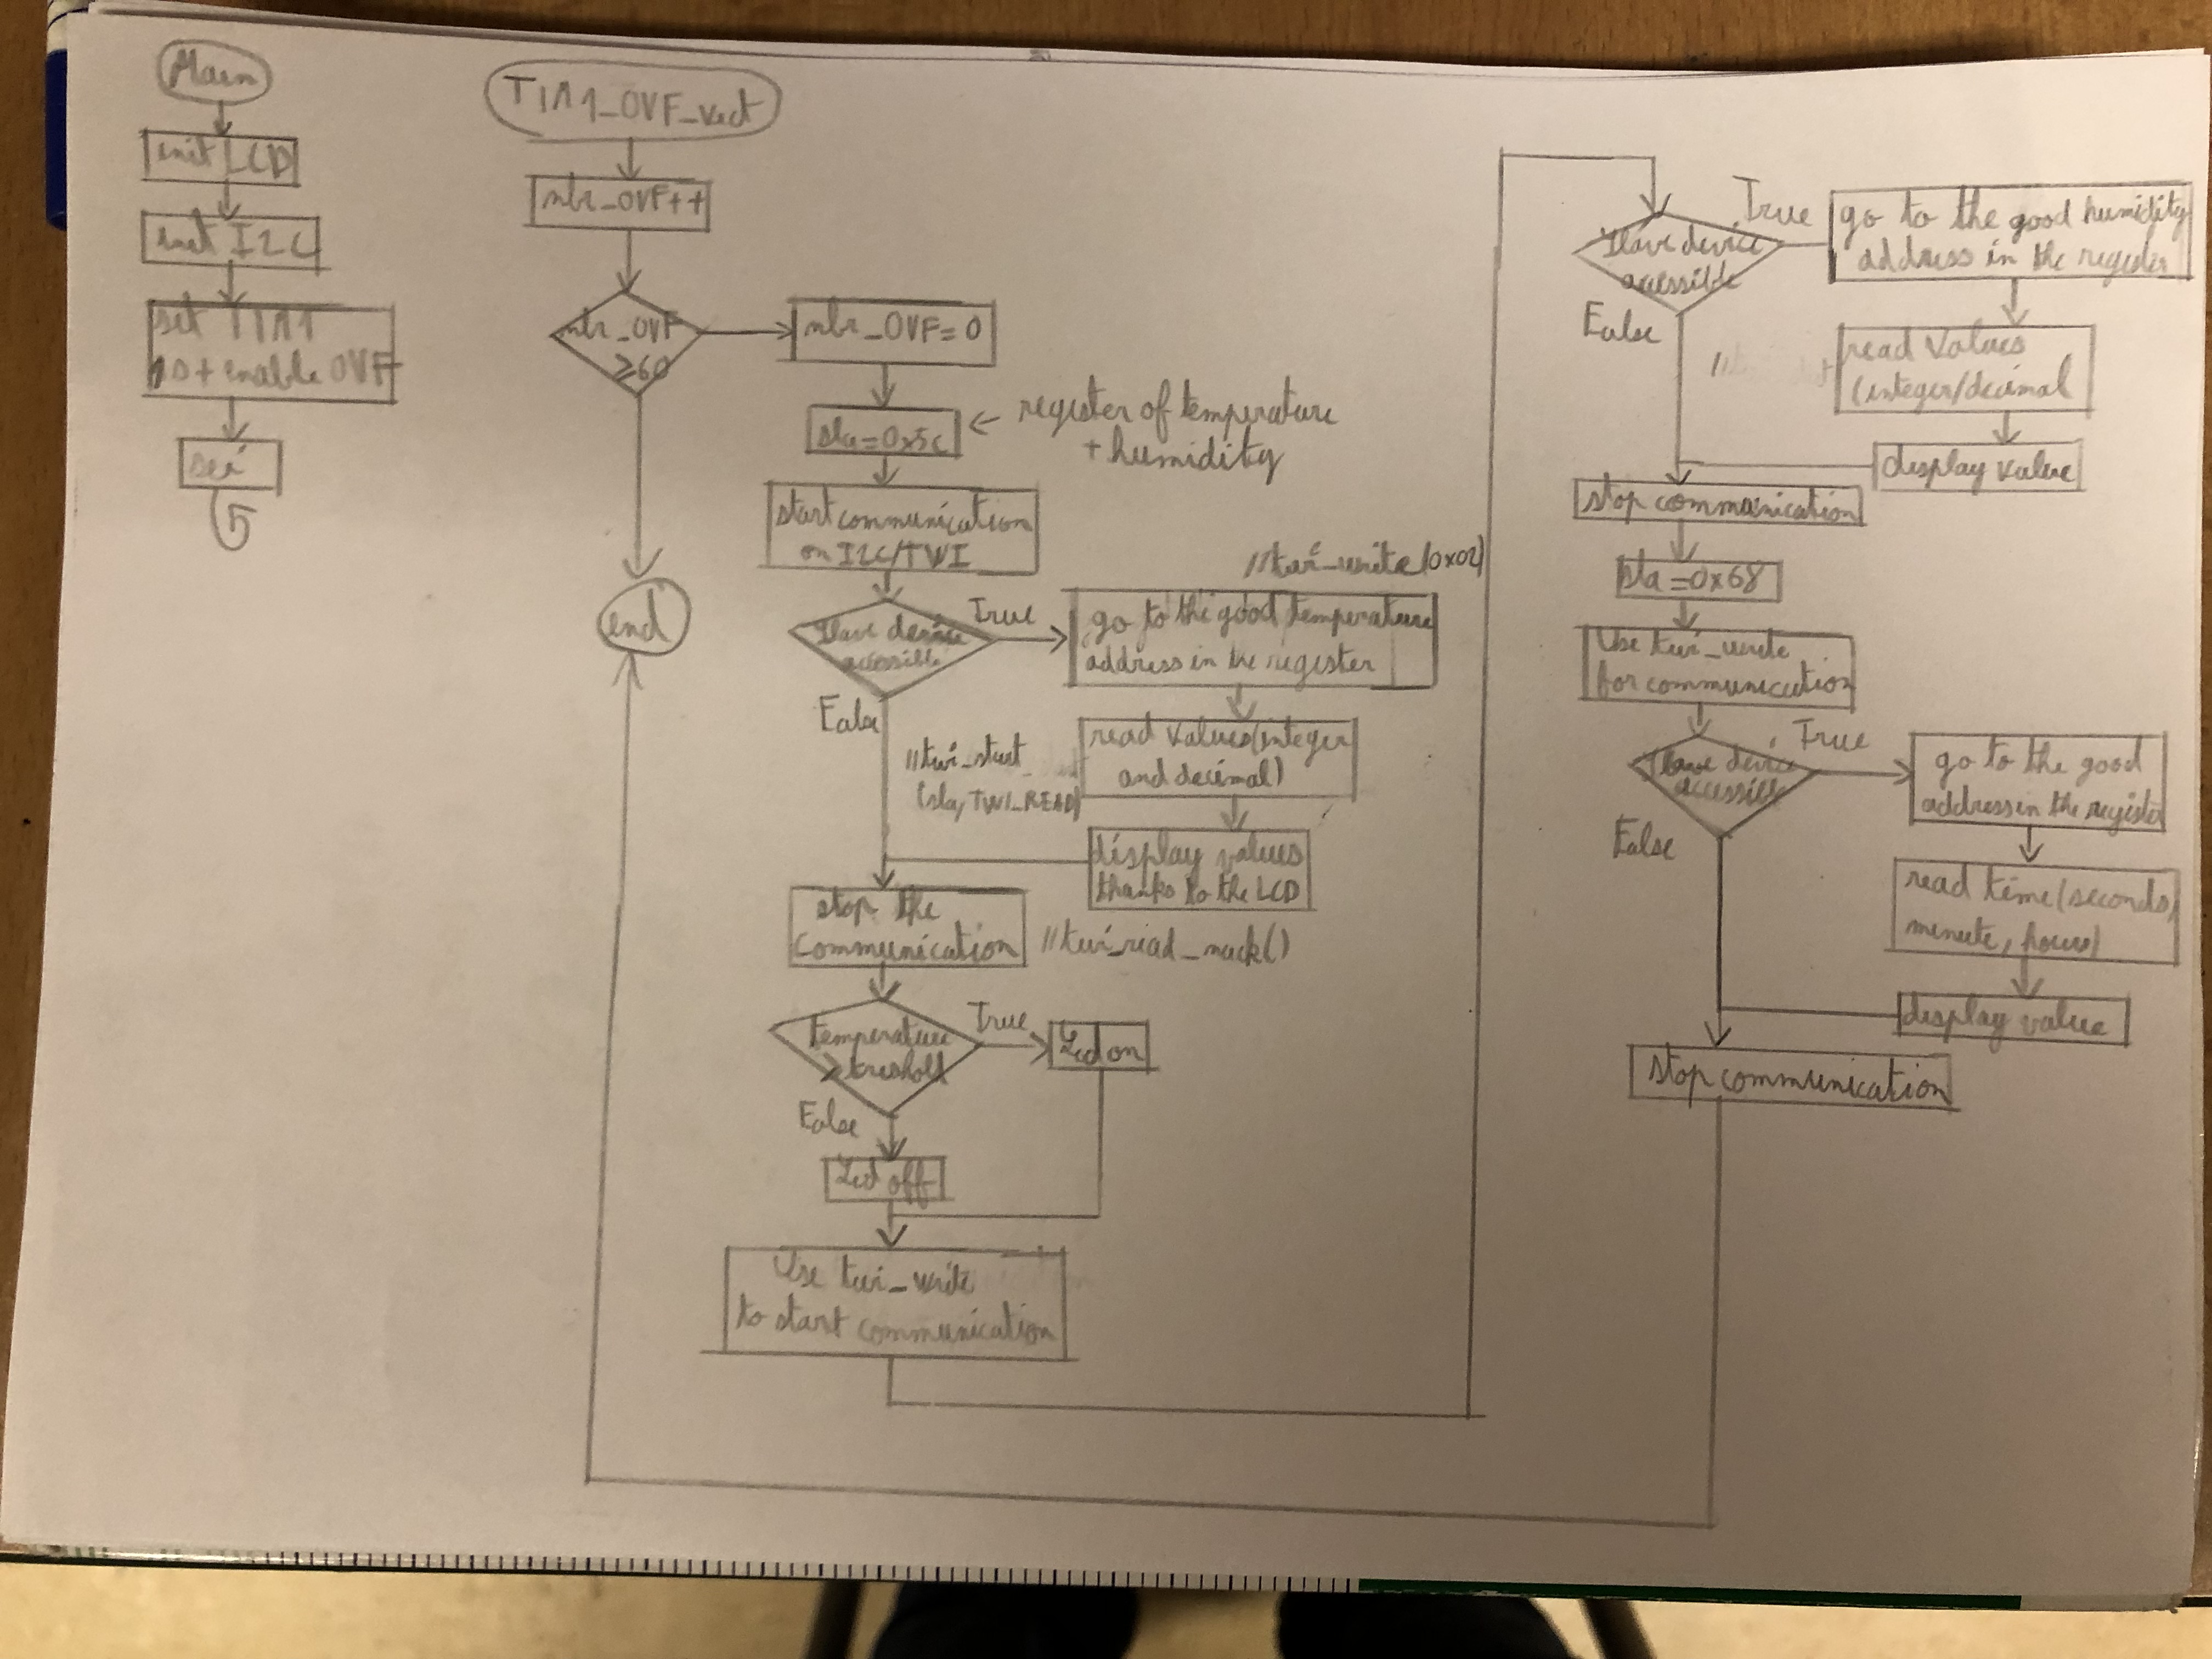 Main
init LCD
init I2C
set TIM1
1s + enable OVF
sei
TIM1_OVF_vect
nbr_OVF++
nbr_OVF
≥60
end
nbr_OVF=0
sla=0x5c
← register of temperature
+ humidity
start communication
on I2C/TWI
Slave device
accessible
True
False
//twi_write(0x02)
go to the good temperature
address in the register
//twi_start
(sla, TWI_READ)
read values(integer
and decimal)
display values
thanks to the LCD
stop the
communication
//twi_read_nack()
temperature
≥ treshold
True
False
Led on
Led off
Use twi_write
to start communication
Slave device
accessible
True
False
go to the good humidity
address in the register
read values
(integer/decimal
display value
stop communication
sla=0x68
Use twi_write
for communication
Slave device
accessible
True
False
go to the good
address in the register
read time(seconds,
minute, hours)
display value
stop communication